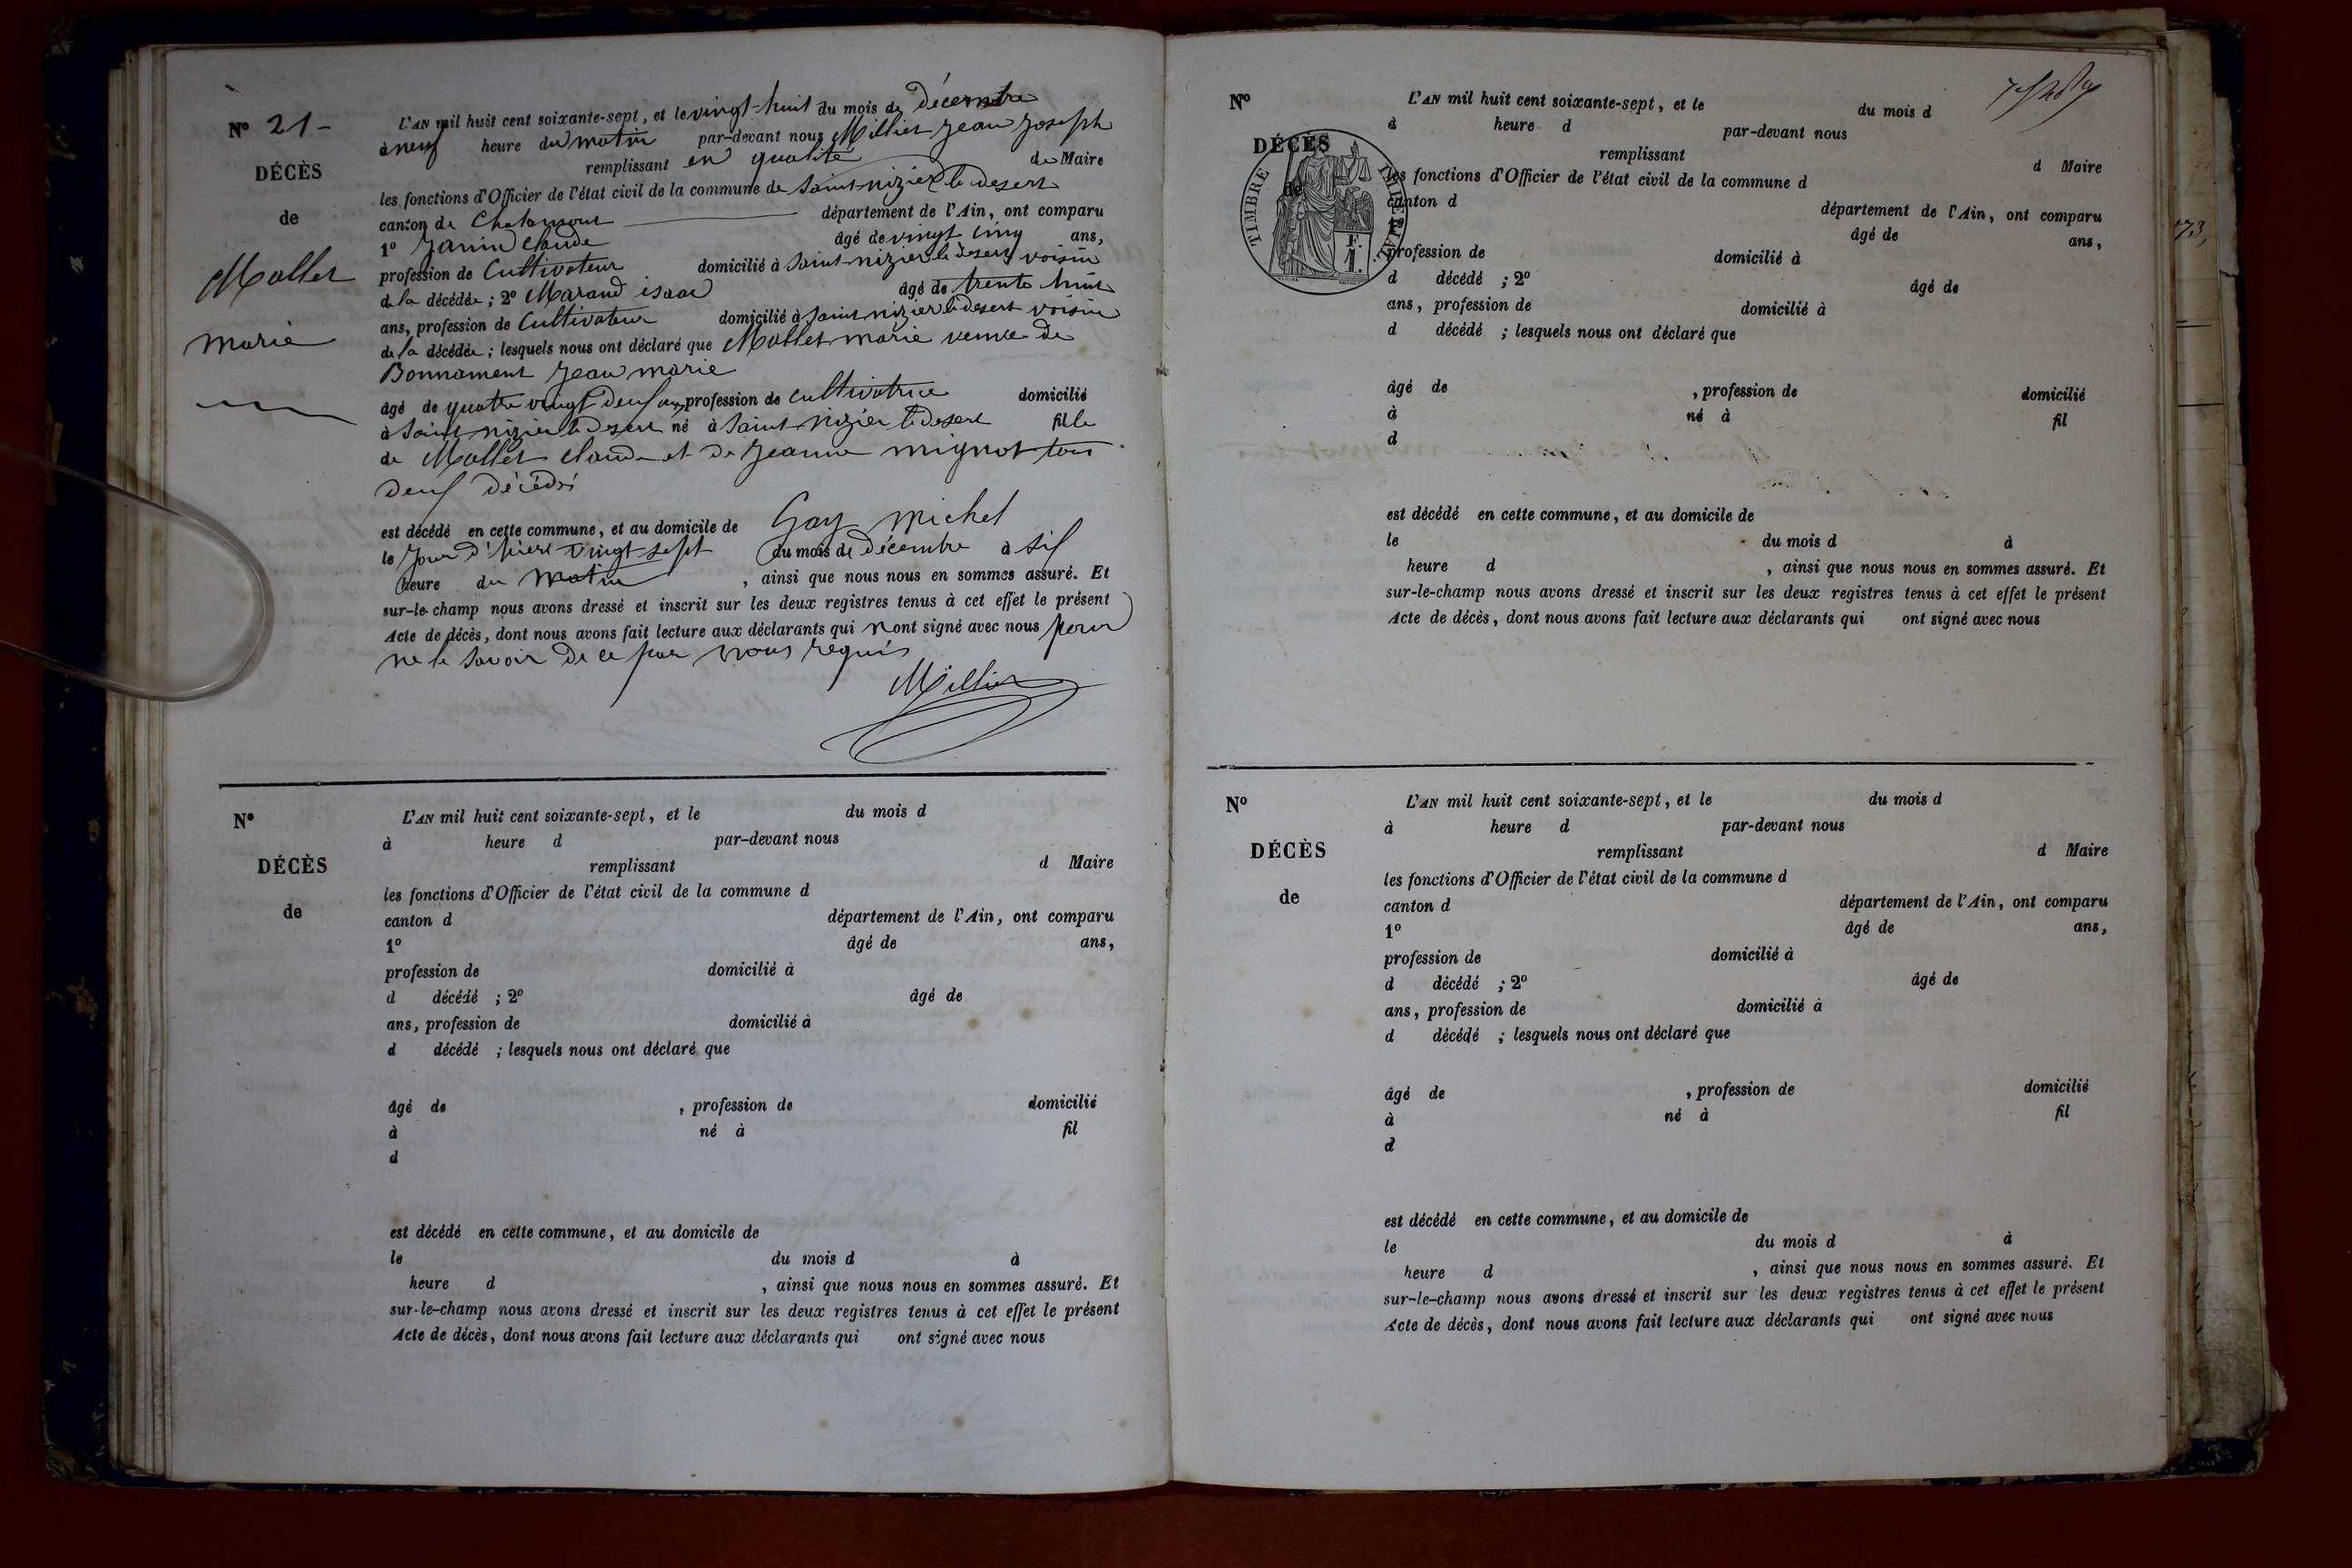 N° 21 -
DÉCÈS
de
Mollet
marie
L'AN mil huit cent soixante-sept, et le vingt-huit du mois de décembre
à neuf heure du matin par-devant nous Millier Jean Joseph
remplissant en qualité de Maire
les fonctions d'Officier de l'état civil de la commune de Saint nizier le desert
canton de Chalamont département de l'Ain, ont comparu
1° Janin Claude âgé de vingt cinq ans,
profession de Cultivateur domicilié à Saint nizier le desert voisin
de la décédée ; 2° Marand isaac âgé de trente huit
ans, profession de Cultivateur domicilié à Saint nizier le desert voisin
de la décédée ; lesquels nous ont déclaré que Mollet marie veuve de
Bonnament Jean marie
âgé de quatre vingt deux ans, profession de cultivatrice domicilié
à Saint nizier le desert né à Saint nizier le desert fille
de Mollet claude et de Jeanne mignot tous
deux décédés
est décédé en cette commune, et au domicile de Gay michel
le jour d'hiere vingt sept du mois de décembre à six
heure du matin , ainsi que nous nous en sommes assuré. Et
sur-le-champ nous avons dressé et inscrit sur les deux registres tenus à cet effet le présent
Acte de décès, dont nous avons fait lecture aux déclarants qui nont signé avec nous pour
ne le savoir de ce par nous requis
Millier
N°
DÉCÈS
de
L'AN mil huit cent soixante-sept, et le du mois d
à heure d par-devant nous
remplissant d Maire
les fonctions d'Officier de l'état civil de la commune d
canton d département de l'Ain, ont comparu
1° âgé de ans,
profession de domicilié à
d décédé ; 2° âgé de
ans, profession de domicilié à
d décédé ; lesquels nous ont déclaré que
âgé de , profession de domicilié
à né à fil
d
est décédé en cette commune, et au domicile de
le du mois d à
heure d , ainsi que nous nous en sommes assuré. Et
sur-le-champ nous avons dressé et inscrit sur les deux registres tenus à cet effet le présent
Acte de décès, dont nous avons fait lecture aux déclarants qui ont signé avec nous
N°
DÉCÈS
de
TIMBRE IMPÉRIAL
1 F.
L'AN mil huit cent soixante-sept, et le du mois d
à heure d par-devant nous
remplissant d Maire
les fonctions d'Officier de l'état civil de la commune d
canton d département de l'Ain, ont comparu
1° âgé de ans,
profession de domicilié à
d décédé ; 2° âgé de
ans, profession de domicilié à
d décédé ; lesquels nous ont déclaré que
âgé de , profession de domicilié
à né à fil
d
est décédé en cette commune, et au domicile de
le du mois d à
heure d , ainsi que nous nous en sommes assuré. Et
sur-le-champ nous avons dressé et inscrit sur les deux registres tenus à cet effet le présent
Acte de décès, dont nous avons fait lecture aux déclarants qui ont signé avec nous
N°
DÉCÈS
de
L'AN mil huit cent soixante-sept, et le du mois d
à heure d par-devant nous
remplissant d Maire
les fonctions d'Officier de l'état civil de la commune d
canton d département de l'Ain, ont comparu
1° âgé de ans,
profession de domicilié à
d décédé ; 2° âgé de
ans, profession de domicilié à
d décédé ; lesquels nous ont déclaré que
âgé de , profession de domicilié
à né à fil
d
est décédé en cette commune, et au domicile de
le du mois d à
heure d , ainsi que nous nous en sommes assuré. Et
sur-le-champ nous avons dressé et inscrit sur les deux registres tenus à cet effet le présent
Acte de décès, dont nous avons fait lecture aux déclarants qui ont signé avec nous
73,